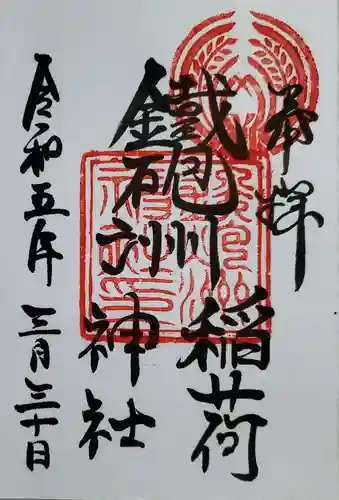 奉拝
鐵砲洲
稲荷
神社
令和五年 三月三十日